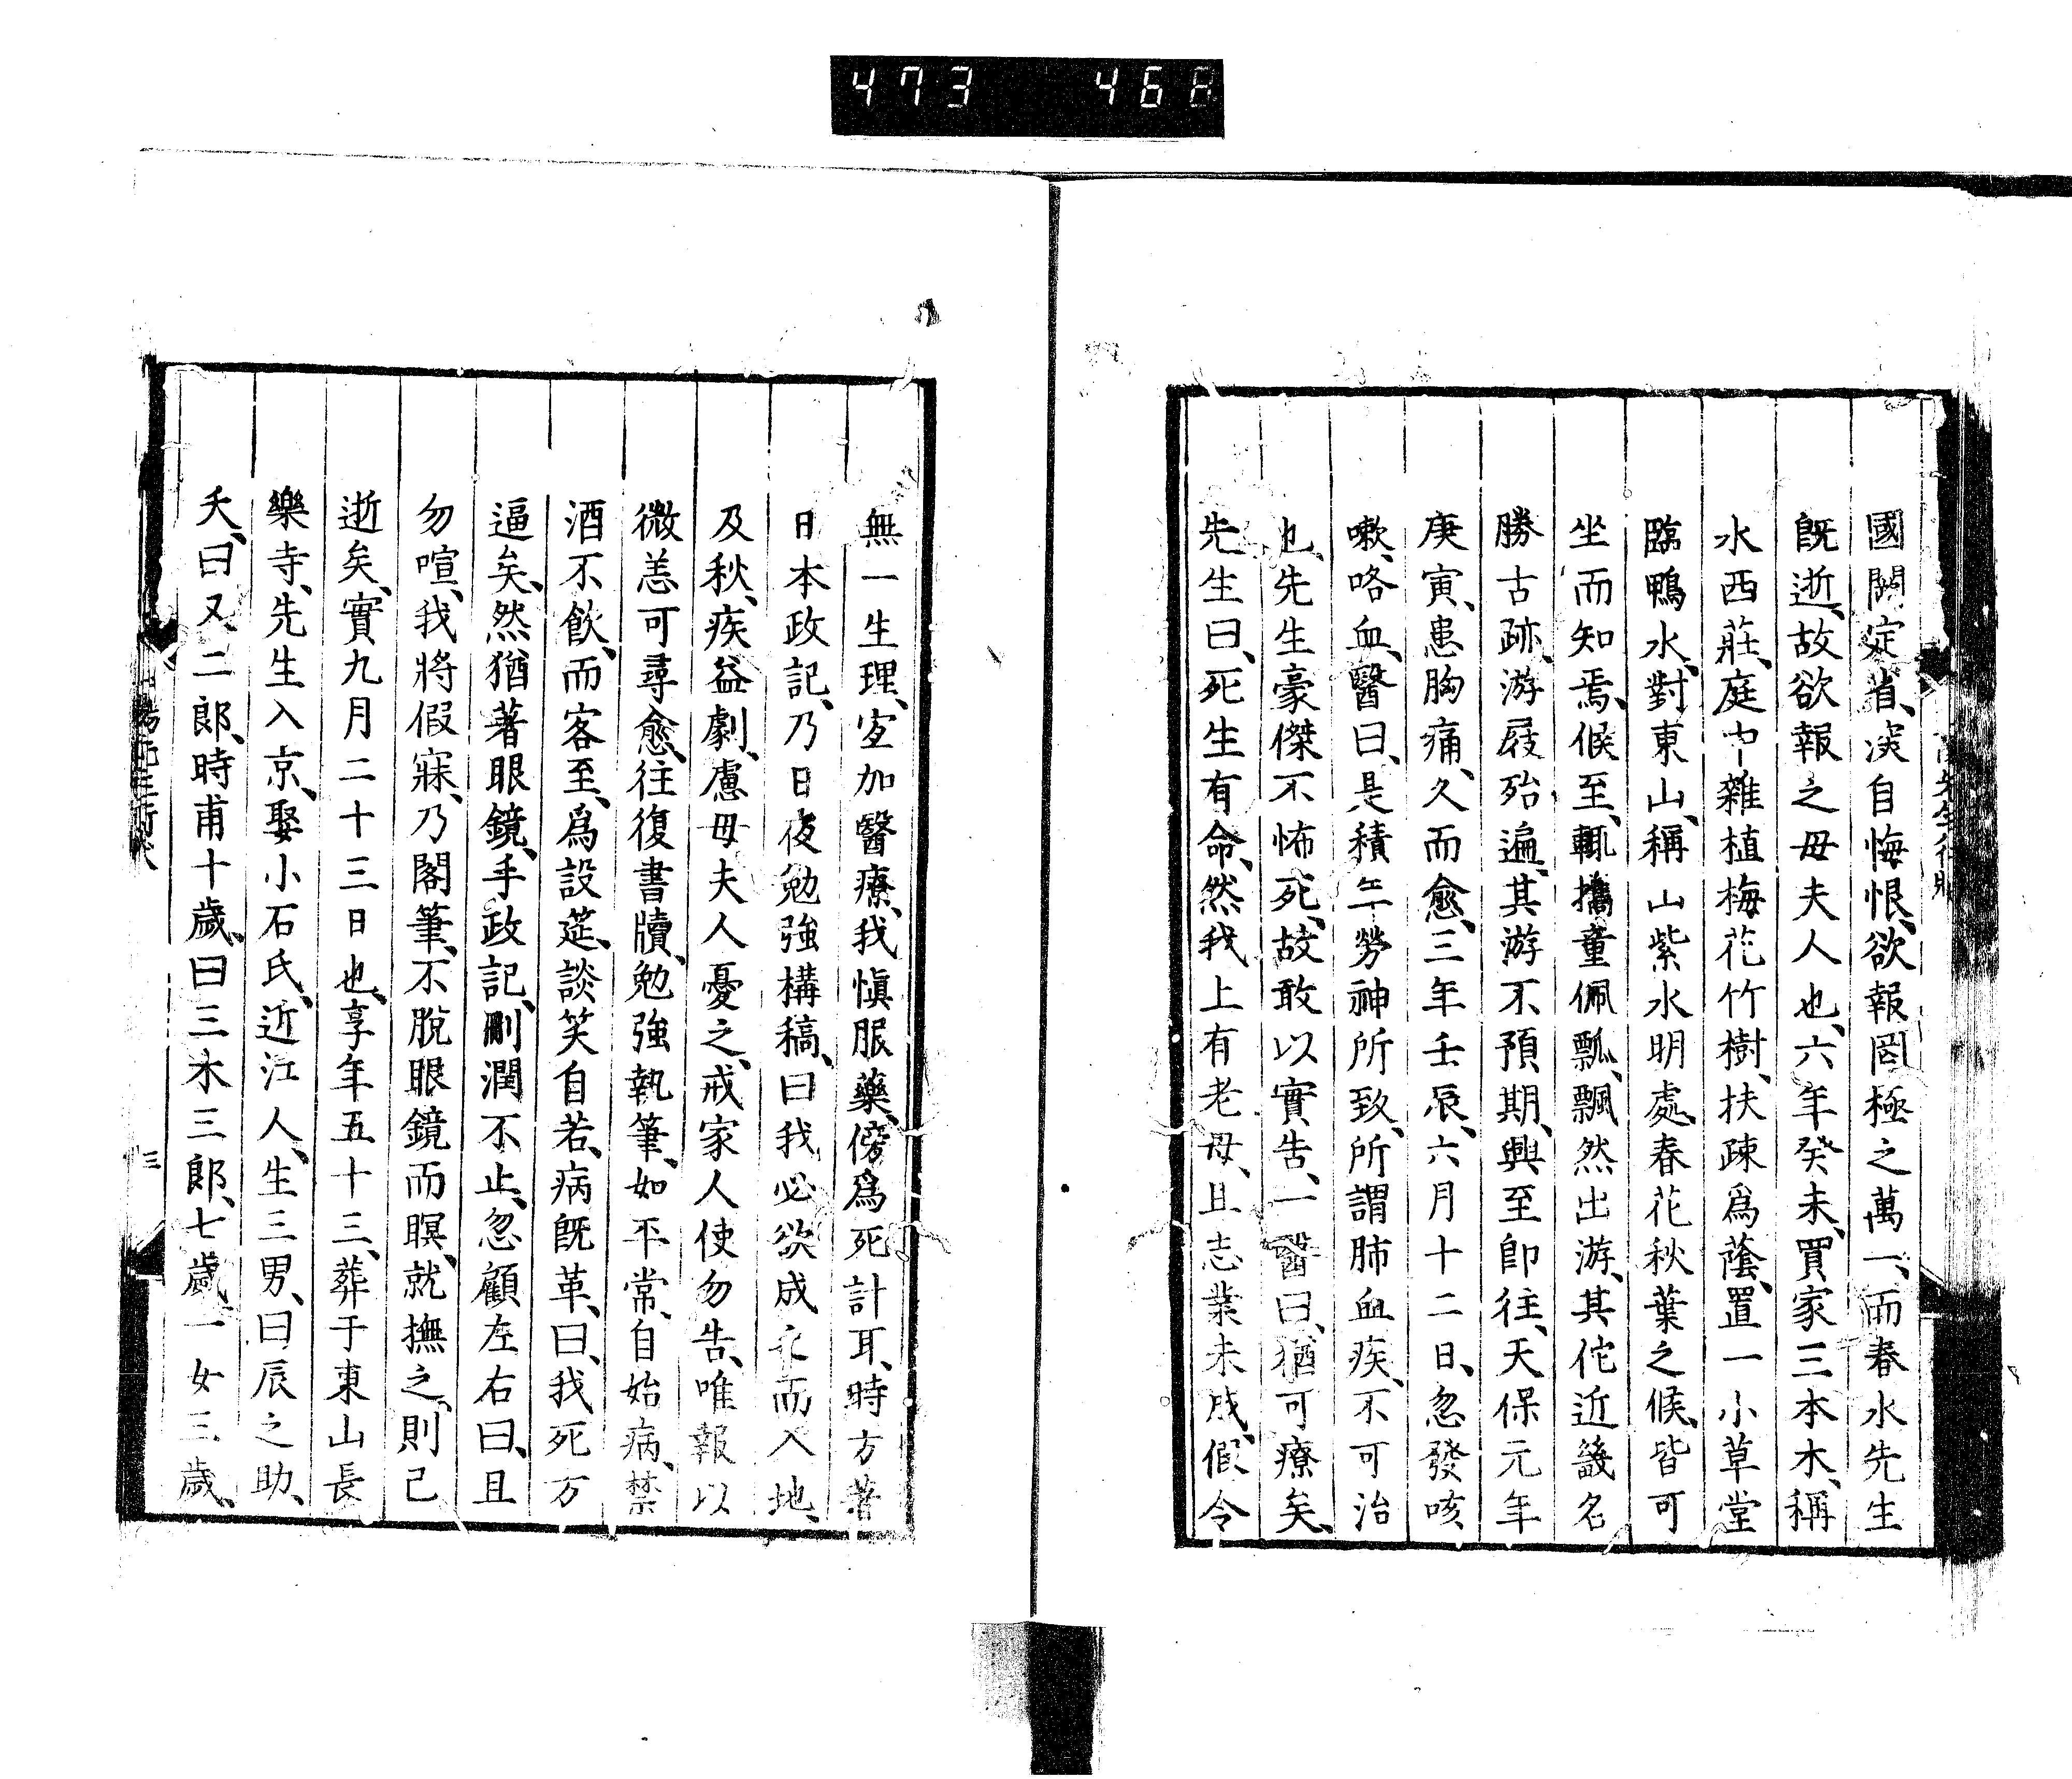 473 468
國闕定省、深自悔恨、欲報罔極之萬一、而春水先生
旣逝、故欲報之母夫人也、六年癸未、買家三本木、稱
水西莊、庭中雜植梅花竹樹、扶疎爲蔭、置一小草堂
臨鴨水、對東山、稱山紫水明處、春花秋葉之候、皆可
坐而知焉、候至、輒攜童佩瓢、飄然出游、其佗近畿名
勝古跡、游屐殆遍、其游不預期、興至卽往、天保元年
庚寅、患胸痛、久而愈、三年壬辰、六月十二日、忽發咳
嗽、咯血、醫曰、是積年勞神所致、所謂肺血疾、不可治
也、先生豪傑不怖死、故敢以實告、一醫曰、猶可療矣、
先生曰、死生有命、然我上有老母、且志業未成、假令
無一生理、宜加醫療、我愼服藥、傍爲死計耳、時方著
日本政記、乃日夜勉強構稿、曰我必欲成之而入地、
及秋、疾益劇、慮母夫人憂之、戒家人使勿告、唯報以
微恙可尋愈、往復書牘、勉強執筆、如平常、自始病、禁
酒不飮、而客至、爲設筵、談笑自若、病旣革、曰、我死方
逼矣、然猶著眼鏡、手政記、刪潤不止、忽顧左右曰、且
勿喧、我將假寐、乃閣筆、不脫眼鏡而瞑、就撫之、則已
逝矣、實九月二十三日也、享年五十三、葬于東山長
樂寺、先生入京、娶小石氏、近江人、生三男、曰辰之助、
夭、曰又二郎、時甫十歲、曰三木三郎、七歲、一女三歲、
三